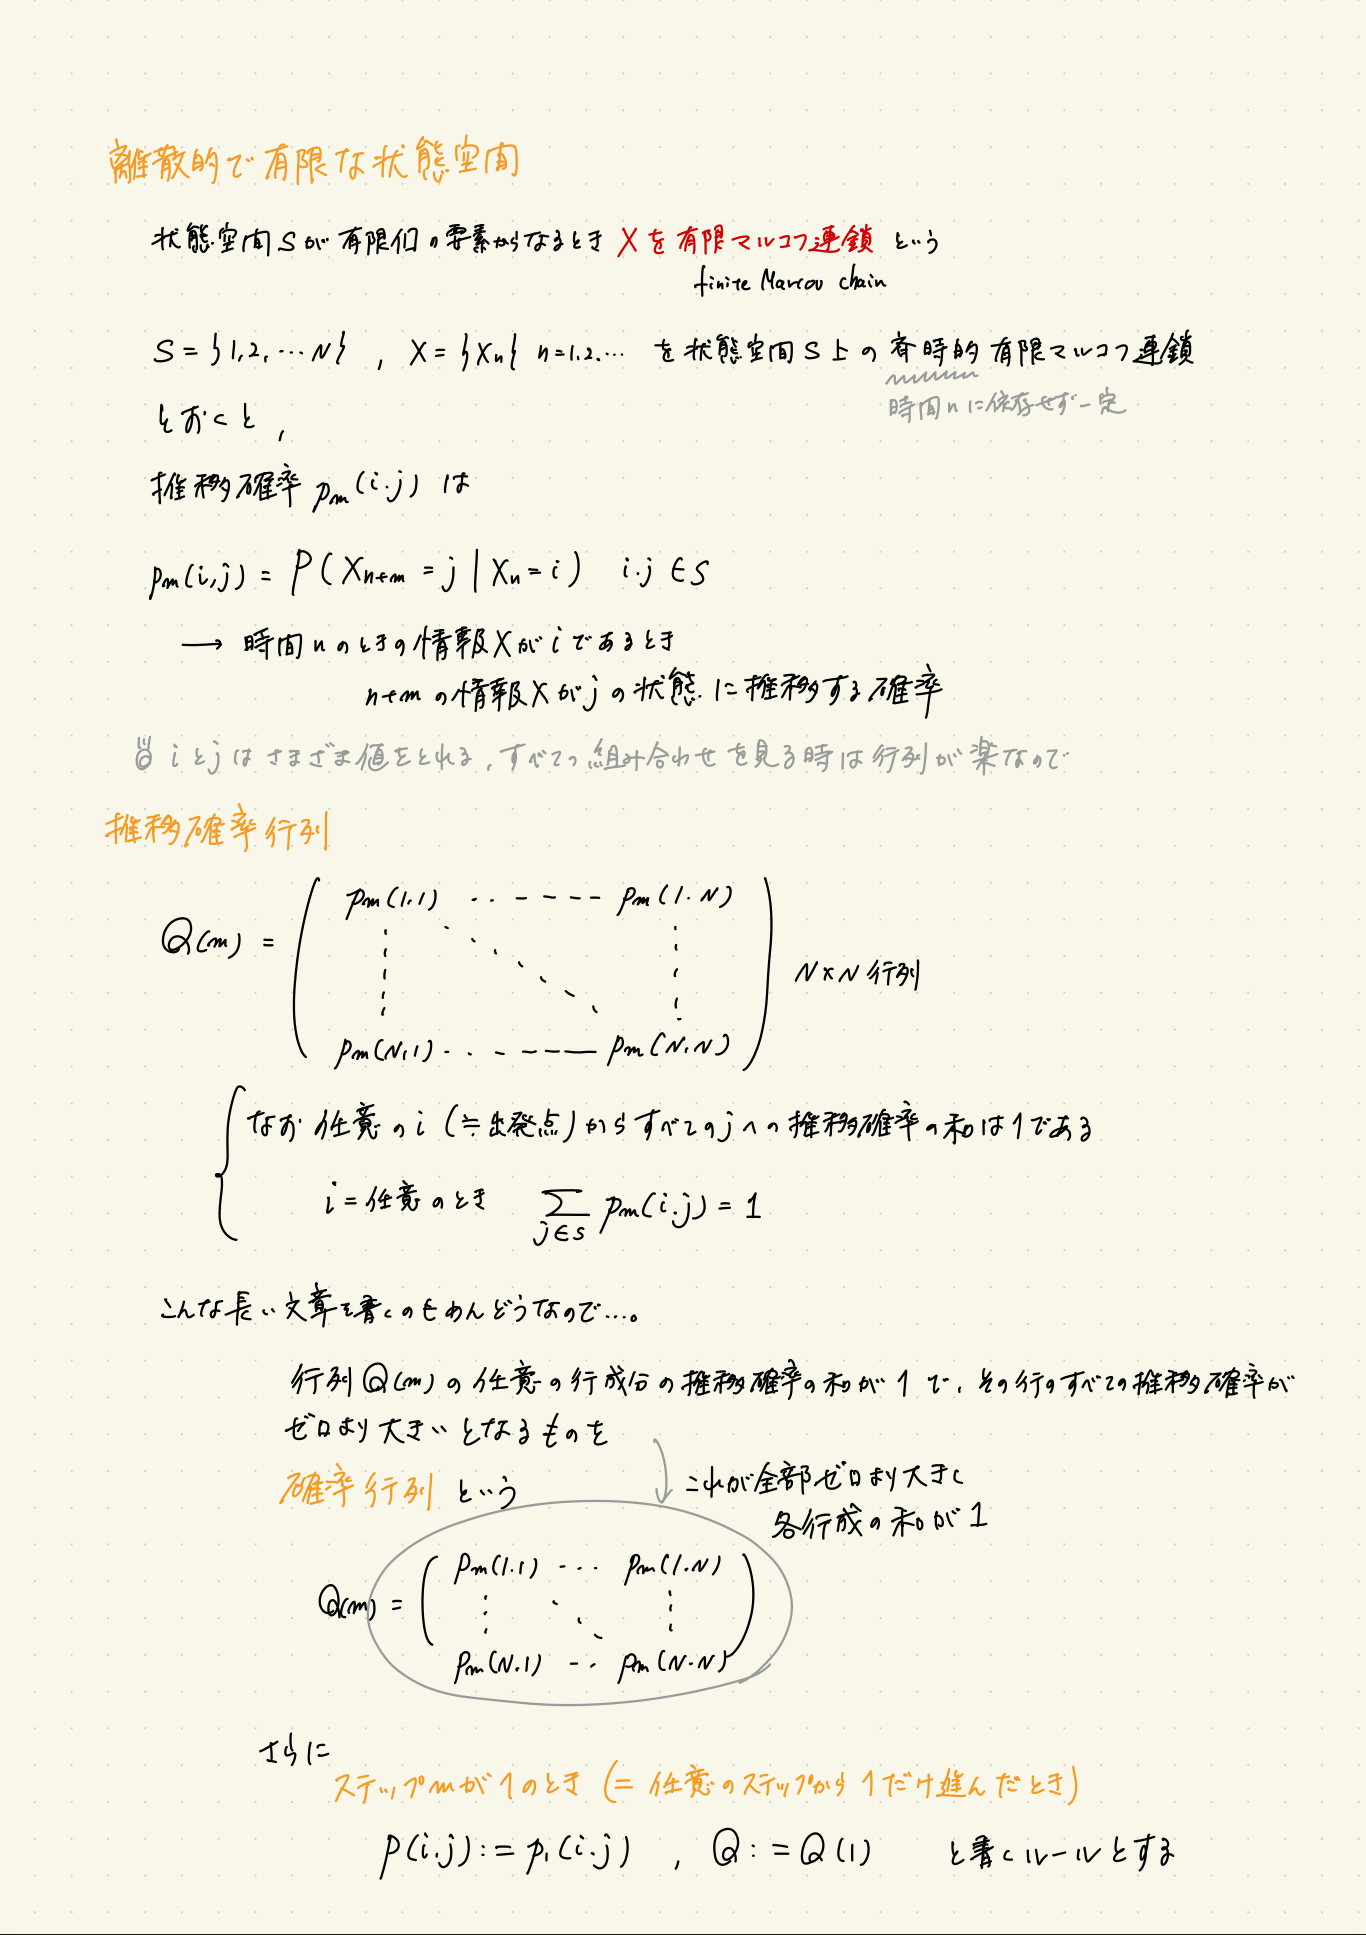 離散的で有限な状態空間
状態空間Sが有限個の要素からなるとき Xを有限マルコフ連鎖 という
finite Marcov chain
S = {1, 2, … N} , X = {Xn} n=1.2.… を状態空間S上の斉時的有限マルコフ連鎖
時間nに依存せず一定
とおくと,
推移確率 pm(i.j) は
pm(i,j) = P( Xn+m = j | Xn = i ) i.j ∈ S
→ 時間nのときの情報Xがiであるとき
n+mの情報Xがjの状態に推移する確率
iとjはさまざま値をとれる, すべての組み合わせを見る時は行列が楽なので
推移確率行列
Q(m) = ( pm(1,1) ‥ - - - - pm(1.N)
pm(N,1) ‥ - - - - pm(N.N) ) N×N 行列
なお 任意のi (≒出発点)からすべてのjへの推移確率の和は1である
i=任意のとき Σ j∈S pm(i.j) = 1
こんな長い文章を書くのもめんどうなので…。
行列Q(m)の任意の行成分の推移確率の和が1で, その行のすべての推移確率が
ゼロより大きいとなるものを
確率行列 という
これが全部ゼロより大きく
各行成の和が1
Q(m) = ( pm(1.1) … pm(1.N)
pm(N.1) -‥ pm(N.N) )
さらに
ステップmが1のとき (= 任意のステップから1だけ進んだとき)
p(i.j) := p1(i.j) , Q := Q(1) と書くルールとする